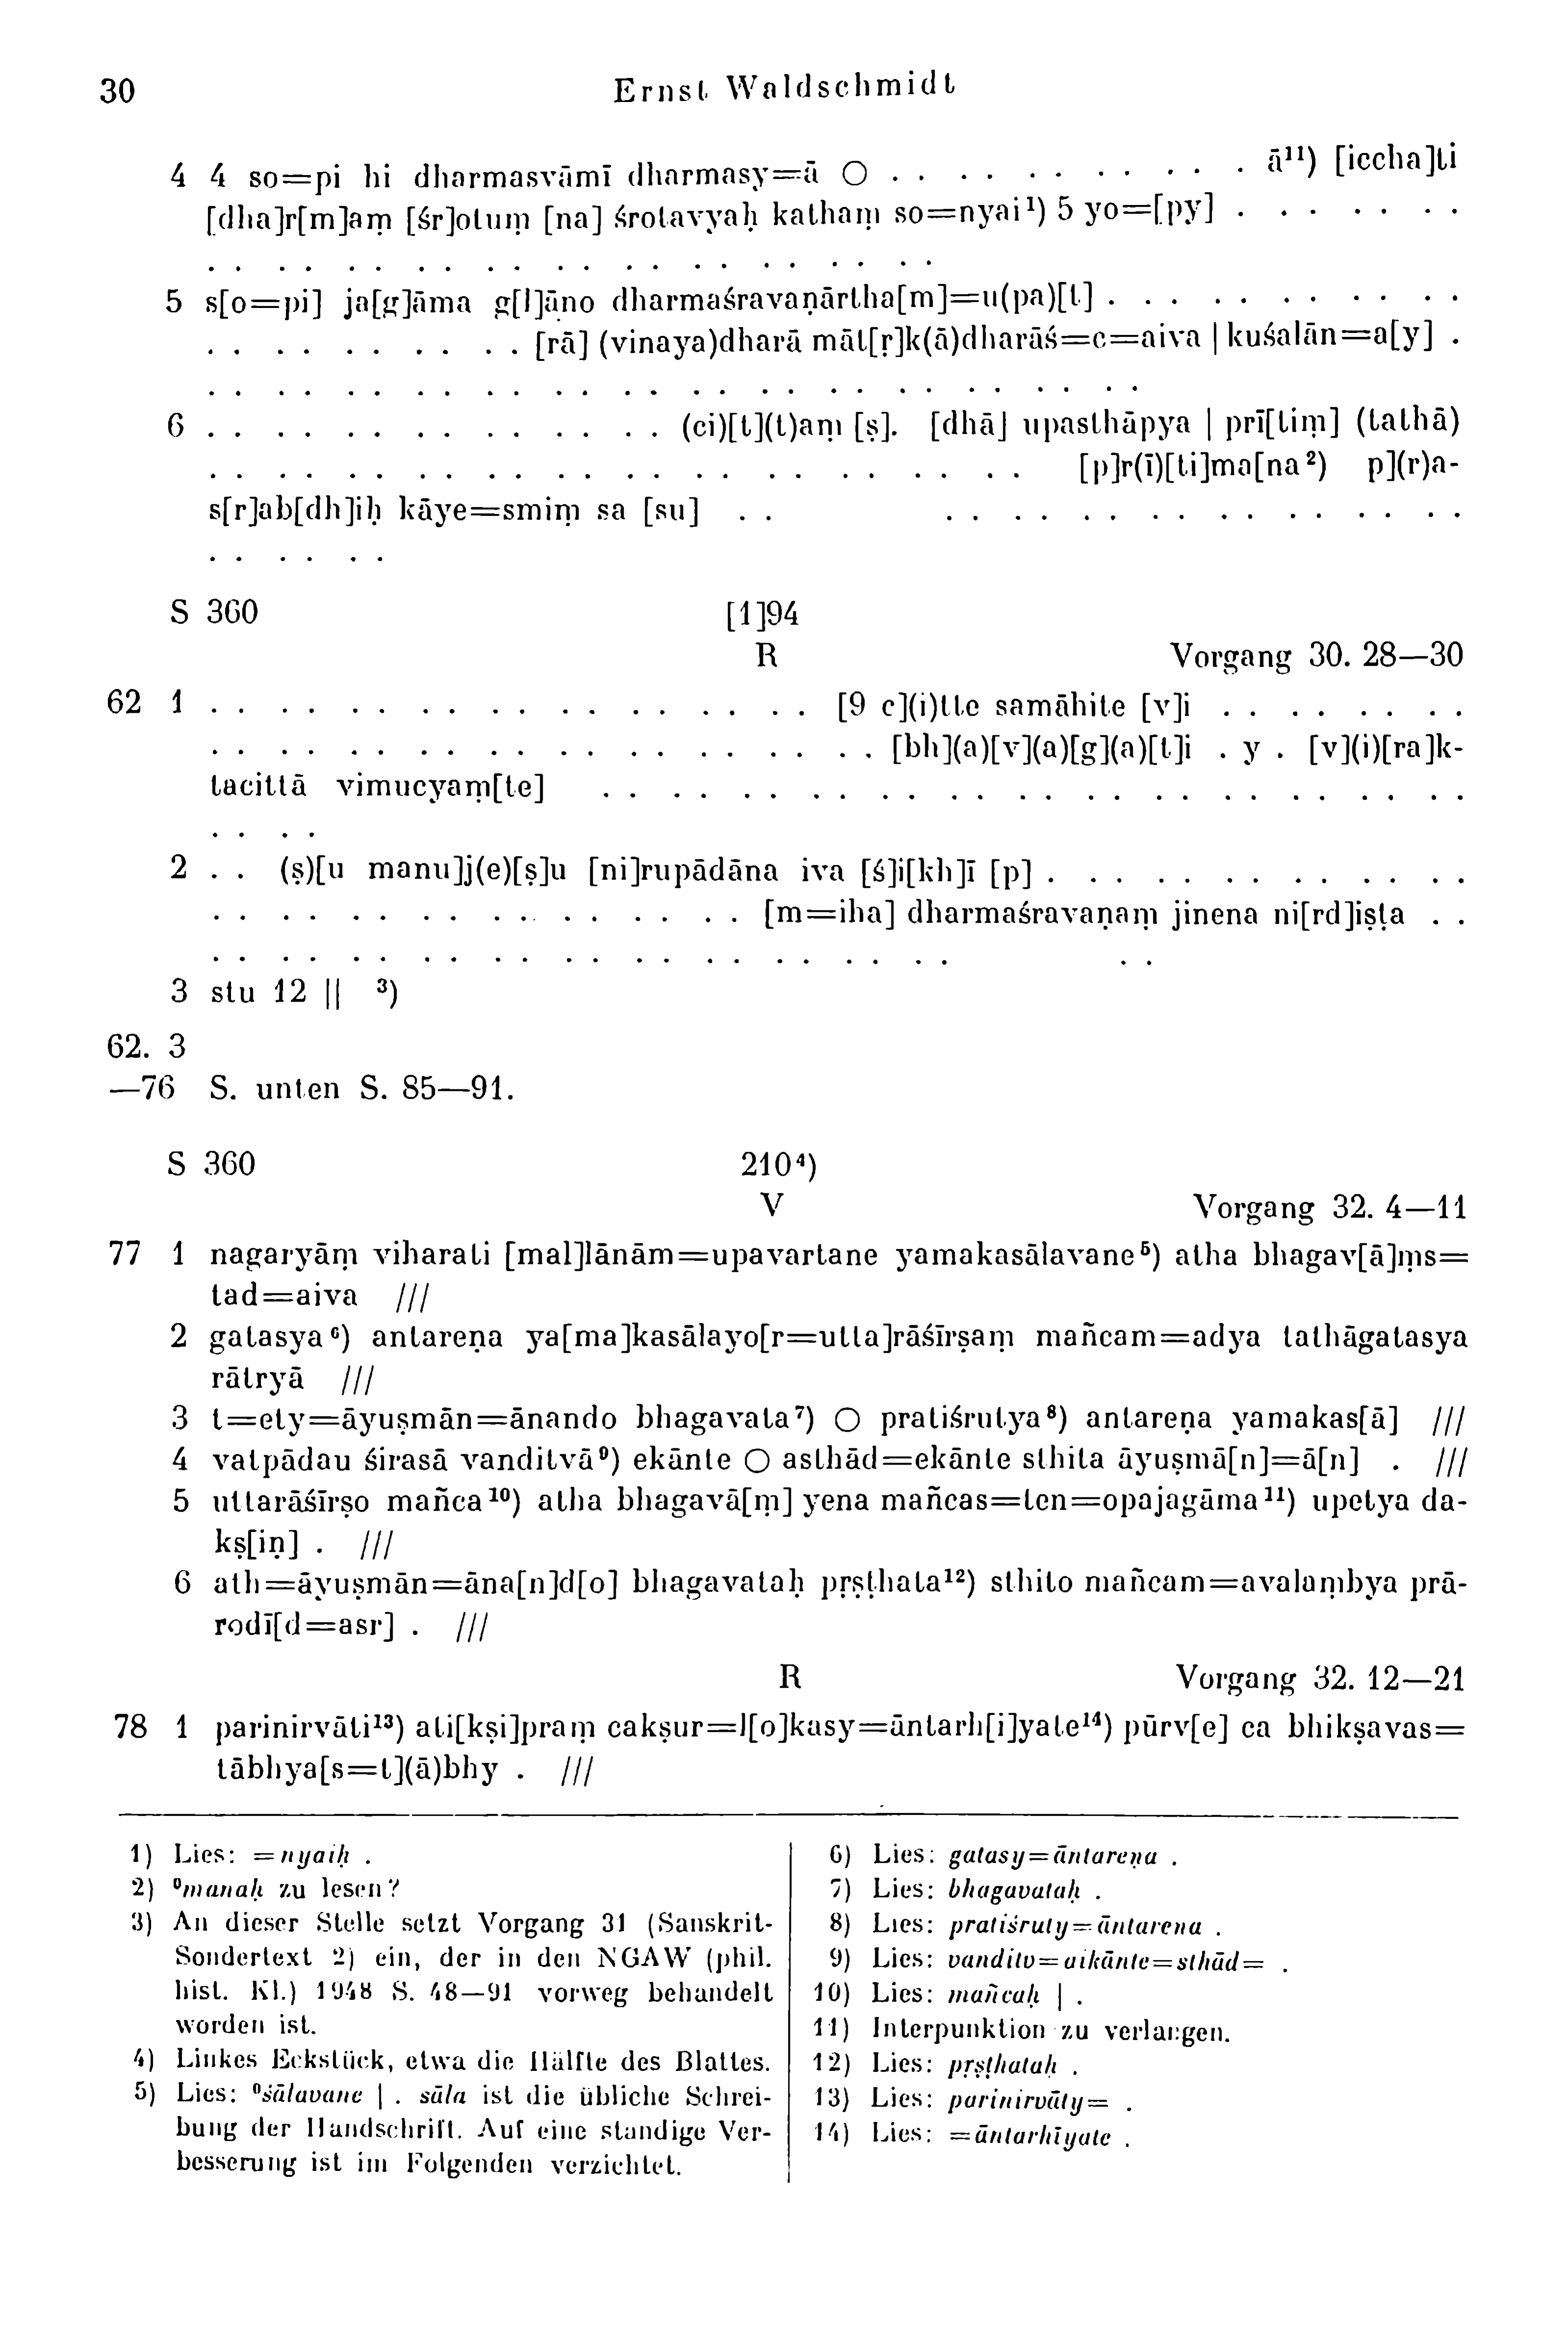 30 Ernst Waldschmidt
4 4 so=pi hi dharmasvāmī dharmasy=ā ○ . . . . . . . . . . . ā¹¹) [iccha]ti
[dha]r[m]aṃ [śr]otuṃ [na] śrotavyaḥ kathaṃ so=nyai¹) 5 yo=[py] . . . . . . . .
. . . . . . . . . . . . . . . . . . . . . .
5 s[o=pi] ja[g]āma g[l]āno dharmaśravaṇārtha[m]=u(pa)[t] . . . . . . . . . . .
. . . . . . . . . . [rā] (vinaya)dharā māt[ṛ]k(ā)dharāś=c=aiva | kuśalān=a[y] .
. . . . . . . . . . . . . . . . . . . . . . . . . . . .
6 . . . . . . . . . . . . . . (ci)[t](t)aṃ [ṣ]. [dhā] upasthāpya | prī[tiṃ] (tathā)
. . . . . . . . . . . . . . . . . . . . . . . . [p]r(ī)[ti]ma[na²) p](r)a-
s[r]ab[dh]iḥ kāye=smiṃ sa [su] . . . . . . . . . . . . . . . . . .
. . . . . .
S 360 [1]94
R Vorgang 30. 28—30
62 1 . . . . . . . . . . . . . . . . . . [9 c](i)tte samāhite [v]i . . . . . . . .
. . . . . . . . . . . . . . . . . . . . [bh](a)[v](a)[g](a)[t]i . y . [v](i)[ra]k-
tacittā vimucyaṃ[te] . . . . . . . . . . . . . . . . . . . . . . . . .
. . . .
2 . . (ṣ)[u manu]j(e)[ṣ]u [ni]rupādāna iva [ś]i[kh]ī [p] . . . . . . . . . . . . .
. . . . . . . . . . . . . . . . [m=iha] dharmaśravaṇaṃ jinena ni[rd]iṣṭa . .
. . . . . . . . . . . . . . . . . . . . . . . .
3 stu 12 || ³)
62. 3
—76 S. unten S. 85—91.
S 360 210⁴)
V Vorgang 32. 4—11
77 1 nagaryāṃ viharati [mal]lānām=upavartane yamakasālavane⁵) atha bhagav[ā]ṃs=
tad=aiva ///
2 gatasya⁶) antareṇa ya[ma]kasālayo[r=utta]rāśīrṣaṃ mañcam=adya tathāgatasya
rātryā ///
3 t=ety=āyuṣmān=ānando bhagavata⁷) ○ pratiśrutya⁸) antareṇa yamakas[ā] ///
4 vatpādau śirasā vanditvā⁹) ekānte ○ asthād=ekānte sthita āyuṣmā[n]=ā[n] . ///
5 uttarāśīrṣo mañca¹⁰) atha bhagavā[ṃ] yena mañcas=ten=opajagāma¹¹) upetya da-
kṣ[iṇ] . ///
6 ath=āyuṣmān=āna[n]d[o] bhagavataḥ pṛṣṭhata¹²) sthito mañcam=avalaṃbya prā-
rodī[d=asr] . ///
R Vorgang 32. 12—21
78 1 parinirvāti¹³) ati[kṣi]praṃ cakṣur=l[o]kasy=āntarh[i]yate¹⁴) pūrv[e] ca bhikṣavas=
tābhya[s=t](ā)bhy . ///
1) Lies: =nyaiḥ .
2) ⁰manaḥ zu lesen?
3) An dieser Stelle setzt Vorgang 31 (Sanskrit-
Sondertext 2) ein, der in den NGAW (phil.
hist. Kl.) 1948 S. 48—91 vorweg behandelt
worden ist.
4) Linkes Eckstück, etwa die Hälfte des Blattes.
5) Lies: ⁰śālavane | . sāla ist die übliche Schrei-
bung der Handschrift. Auf eine ständige Ver-
besserung ist im Folgenden verzichtet.
6) Lies: gatasy=āntareṇa .
7) Lies: bhagavataḥ .
8) Lies: pratiśruty=āntareṇa .
9) Lies: vanditv=aikānte=sthād= .
10) Lies: mañcaḥ | .
11) Interpunktion zu verlangen.
12) Lies: pṛṣṭhataḥ .
13) Lies: parinirvāty= .
14) Lies: =āntarhīyate .